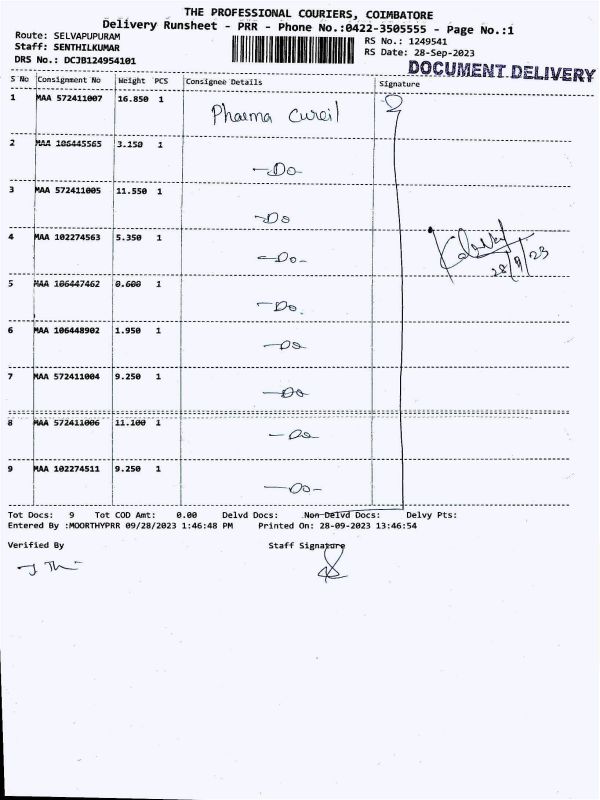 THE PROFESSIONAL COURIERS, COIMBATORE
Delivery Runsheet - PRR - Phone No.:0422-3505555 - Page No.:1
Route: SELVAPUPURAM
RS No.: 1249541
Staff: SENTHILKUMAR
RS Date: 28-Sep-2023
DRS No.: DCJB124954101
DOCUMENT DELIVERY
S No Consignment No Weight PCS Consignee Details Signature
1 MAA 572411007 16.850 1 Pharma Cureil
2 MAA 106445565 3.150 1 -Do-
3 MAA 572411005 11.550 1 -Do
4 MAA 102274563 5.350 1 -Do-
28/9/23
5 MAA 106447462 0.600 1 -Do.
6 MAA 106448902 1.950 1 -Do
7 MAA 572411004 9.250 1 -Do
8 MAA 572411006 11.100 1 -Do
9 MAA 102274511 9.250 1 -Do-
Tot Docs: 9 Tot COD Amt: 0.00 Delvd Docs: Non Delvd Docs: Delvy Pts:
Entered By :MOORTHYPRR 09/28/2023 1:46:48 PM Printed On: 28-09-2023 13:46:54
Verified By Staff Signature